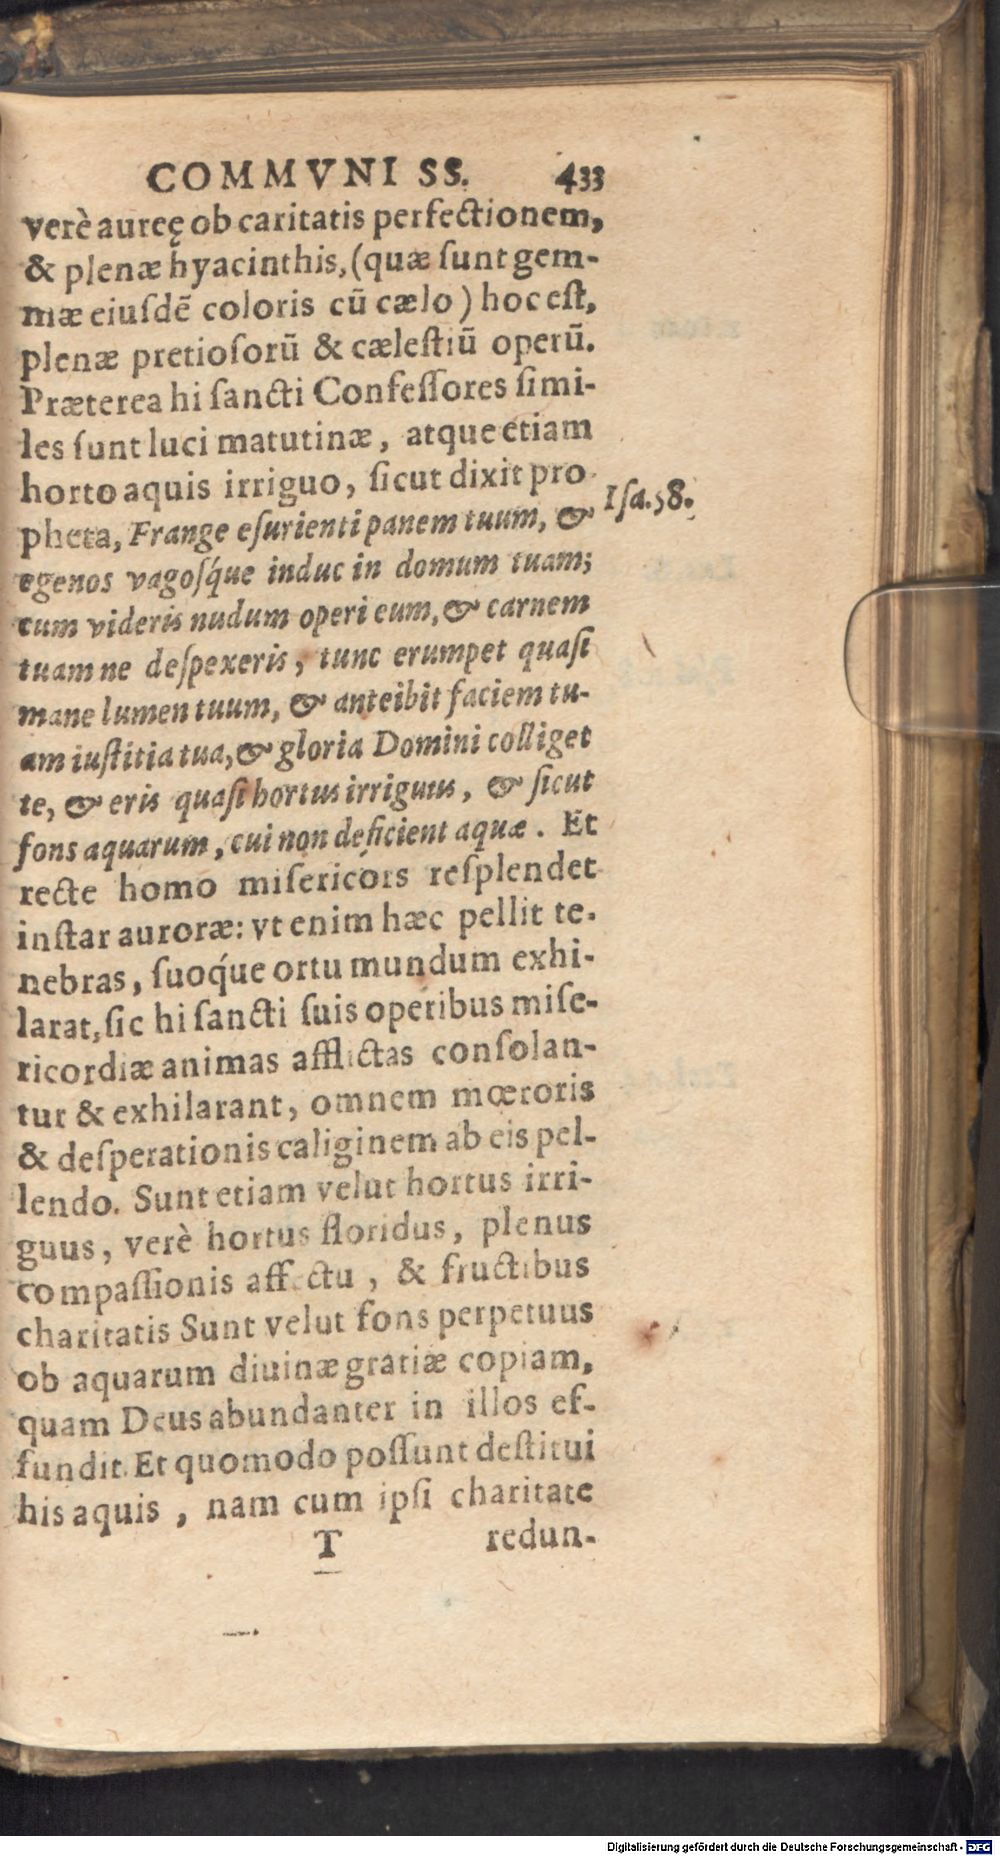 COMMVNI SS. 433
verè aureę ob caritatis perfectionem,
& plenæ hyacinthis, (quæ ſunt gem-
mæ eiuſdẽ coloris cũ cælo) hoc eſt,
plenæ pretioſorũ & cæleſtiũ operũ.
Præterea hi ſancti Confeſſores ſimi-
les ſunt luci matutinæ, atque etiam
horto aquis irriguo, ſicut dixit pro-
pheta, Frange eſurienti panem tuum, & Iſa. 58.
egenos vagoſq́ue induc in domum tuam;
cum videris nudum operi eum, & carnem
tuam ne deſpexeris, tunc erumpet quaſi
mane lumen tuum, & anteibit faciem tu-
am iuſtitia tua, & gloria Domini colliget
te, & eris quaſi hortus irriguus, & ſicut
fons aquarum, cui non deficient aquæ. Et
recte homo miſericors reſplendet
inſtar auroræ: vt enim hæc pellit te-
nebras, ſuoq́ue ortu mundum exhi-
larat, ſic hi ſancti ſuis operibus miſe-
ricordiæ animas afflictas conſolan-
tur & exhilarant, omnem mœroris
& deſperationis caliginem ab eis pel-
lendo. Sunt etiam velut hortus irri-
guus, verè hortus floridus, plenus
compaſſionis affectu, & fructibus
charitatis Sunt velut fons perpetuus
ob aquarum diuinæ gratiæ copiam,
quam Deus abundanter in illos ef-
fundit. Et quomodo poſſunt deſtitui
his aquis, nam cum ipſi charitate
T redun-
Digitalisierung gefördert durch die Deutsche Forschungsgemeinschaft - DFG